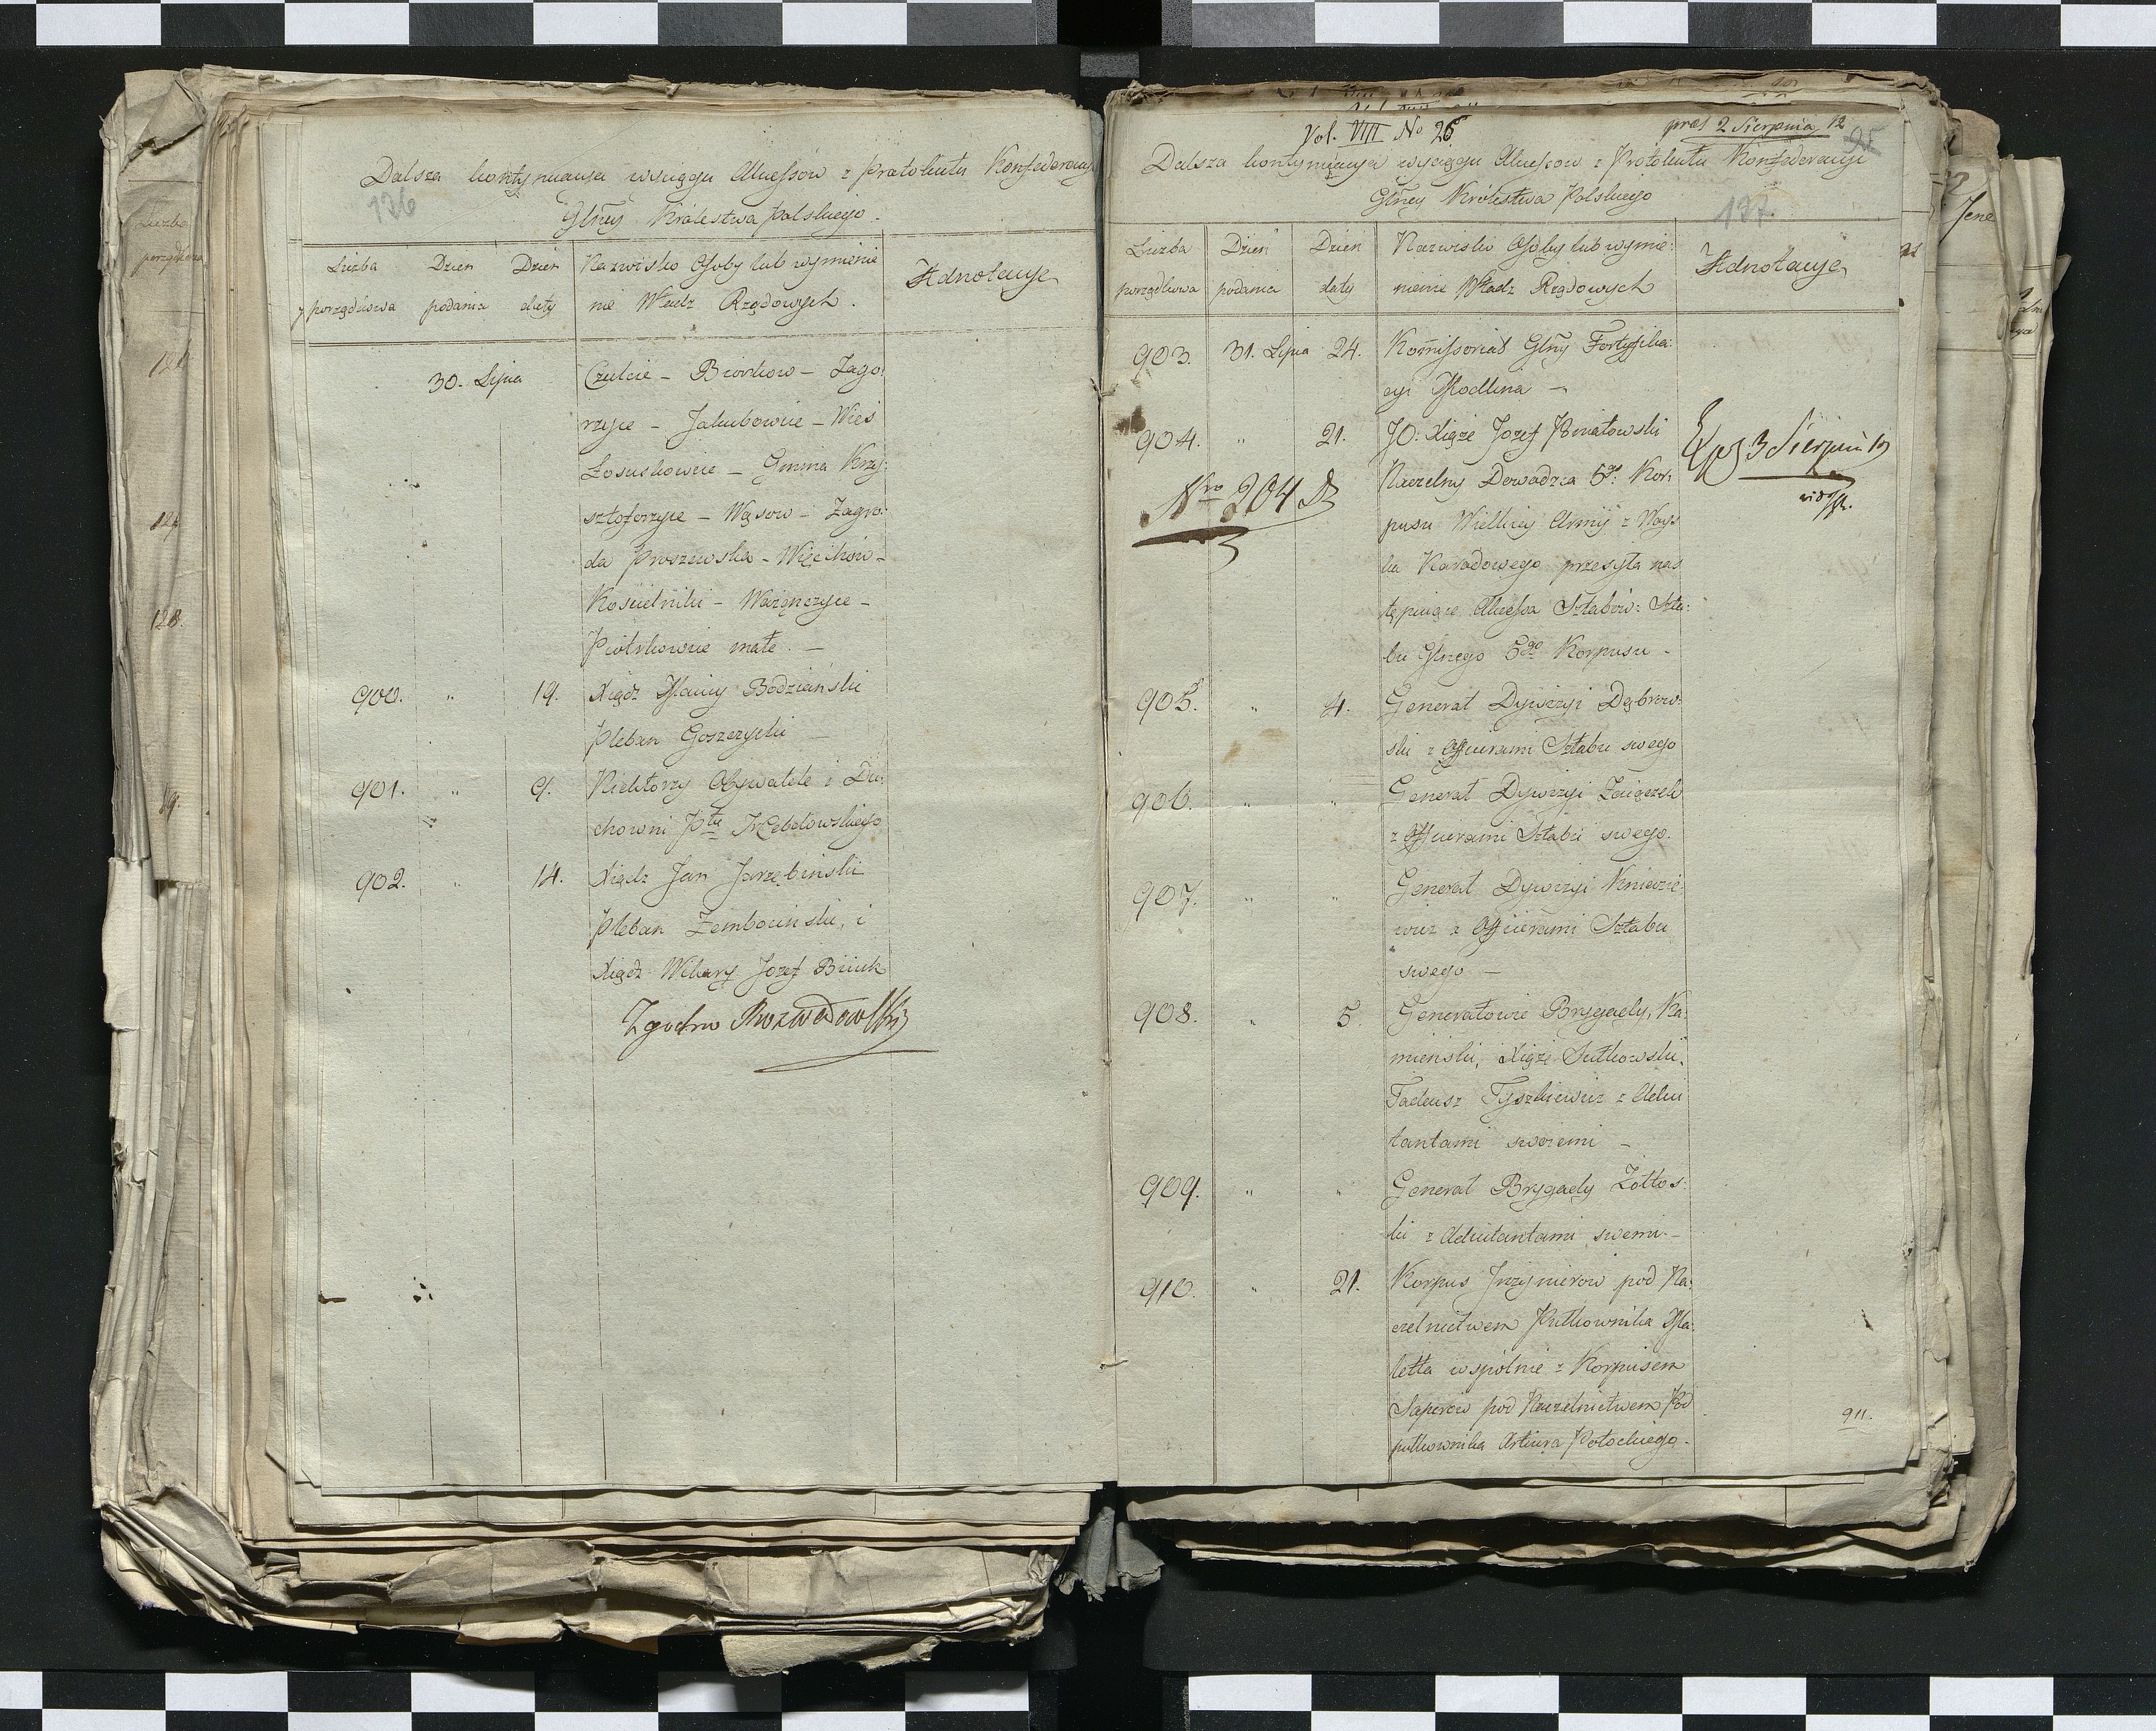 Dalsza kontynuacya wyciągu Akcessów z Protokułu Konfederacyi
136
Głney Królestwa Polskiego.
Liczba porządkowa
Dzień podania
Dzień daty
Nazwisko Osoby lub wymienie
nie Władz Rządowych.
Adnotacye
30. Lipca
Czulcie – Biorkow – Zago
rzyce – Jakubowice – Wieś
Łososkowice – Gmina Krzy:
sztoforzyce – Wąsow – Zagro:
da Proszewska – Więckow –
Kościelniki – Wawrzęczyce –
Piotrkowice małe. –
900. " 19. Xiądz Maciey Bodziański
Pleban Goszczycki –
901. " 9. Niektorzy Obywatele i Du:
chowni Pttu Hrebelowskiego
902. " 14. Xiądz Jan Jarzębiński
Pleban Zembociński, i
Xiądz Wikary Jozef Biiuk
Zgodno Rozwadowski
Vol. VIII No 26
præs 2 Sierpnia 12
95
Dalsza kontynuacya wyciągu Akcessow z Protokułu Konfederacyi
Głney Królestwa Polskiego
137.
Liczba porządkowa
Dzień podania
Dzień daty
Nazwisko Osoby lub wymie:
nienie Władz Rządowych
Adnotacye
903. 31. Lipca 24. Kommissoriat Głny Fortyfika:
cyi Modlina –
904. " 21. JO: Xiąże Jozef Poniatowski
Exp 3 Sierpnia 12
Naczelny Dowodzca 5go Kor:
Nro 204 D
pusu Wielkiey Armij z Woys
ka Narodowego przesyła nas
tępuiące Akcessa Sztabów: Szta:
bu Głnego 5go Korpusu –
905. " 4. Generał Dywizyi Dąbrow:
ski z Officierami Sztabu swego
906. " " Generał Dywizyi Zaiączek
z Officierami Sztabu swego.
907. " " Generał Dywizyi Kniazie:
wicz z Officierami Sztabu
swego –
908. " 5 Generałowie Brygady, Ka:
mieński, Xiąże Sułkowski,
Tadeusz Tyszkiewicz z Adiu
tantami swoiemi –
909. " " Generał Brygady Zołtos:
ki z Adiutantami swemi –
910. " 21. Korpus Inzynierow pod Na:
czelnictwem Pułkownika Ma:
letta wspólnie z Korpusem
Saperow pod Naczelnictwem Pod
pułkownika Artura Potockiego.
911.